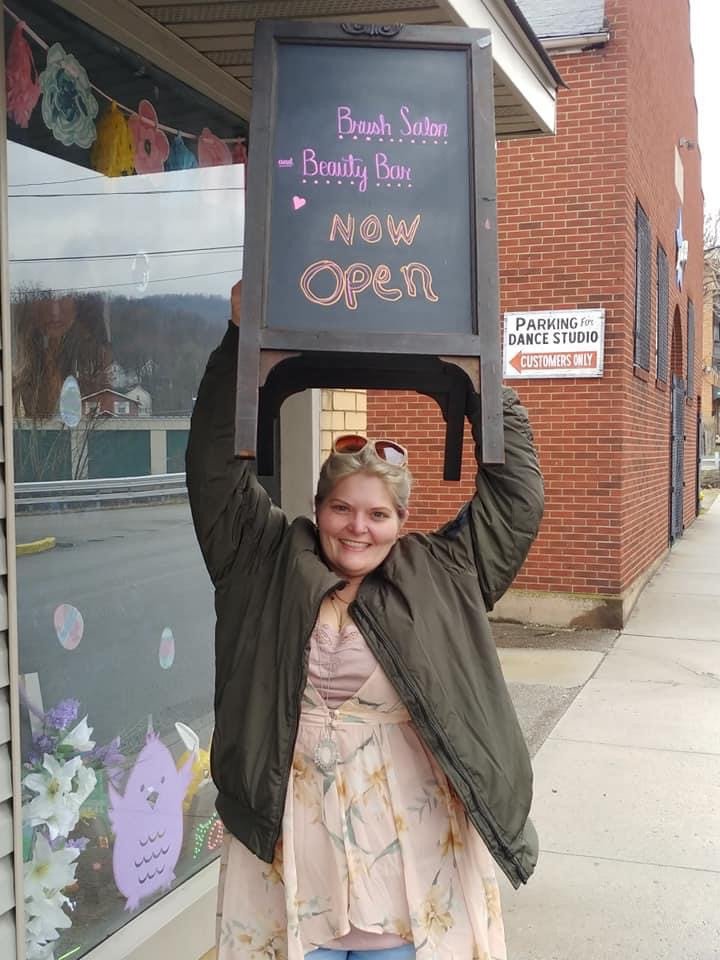 Brush Salon
and Beauty Bar
NOW
Open
PARKING For
DANCE STUDIO
CUSTOMERS ONLY